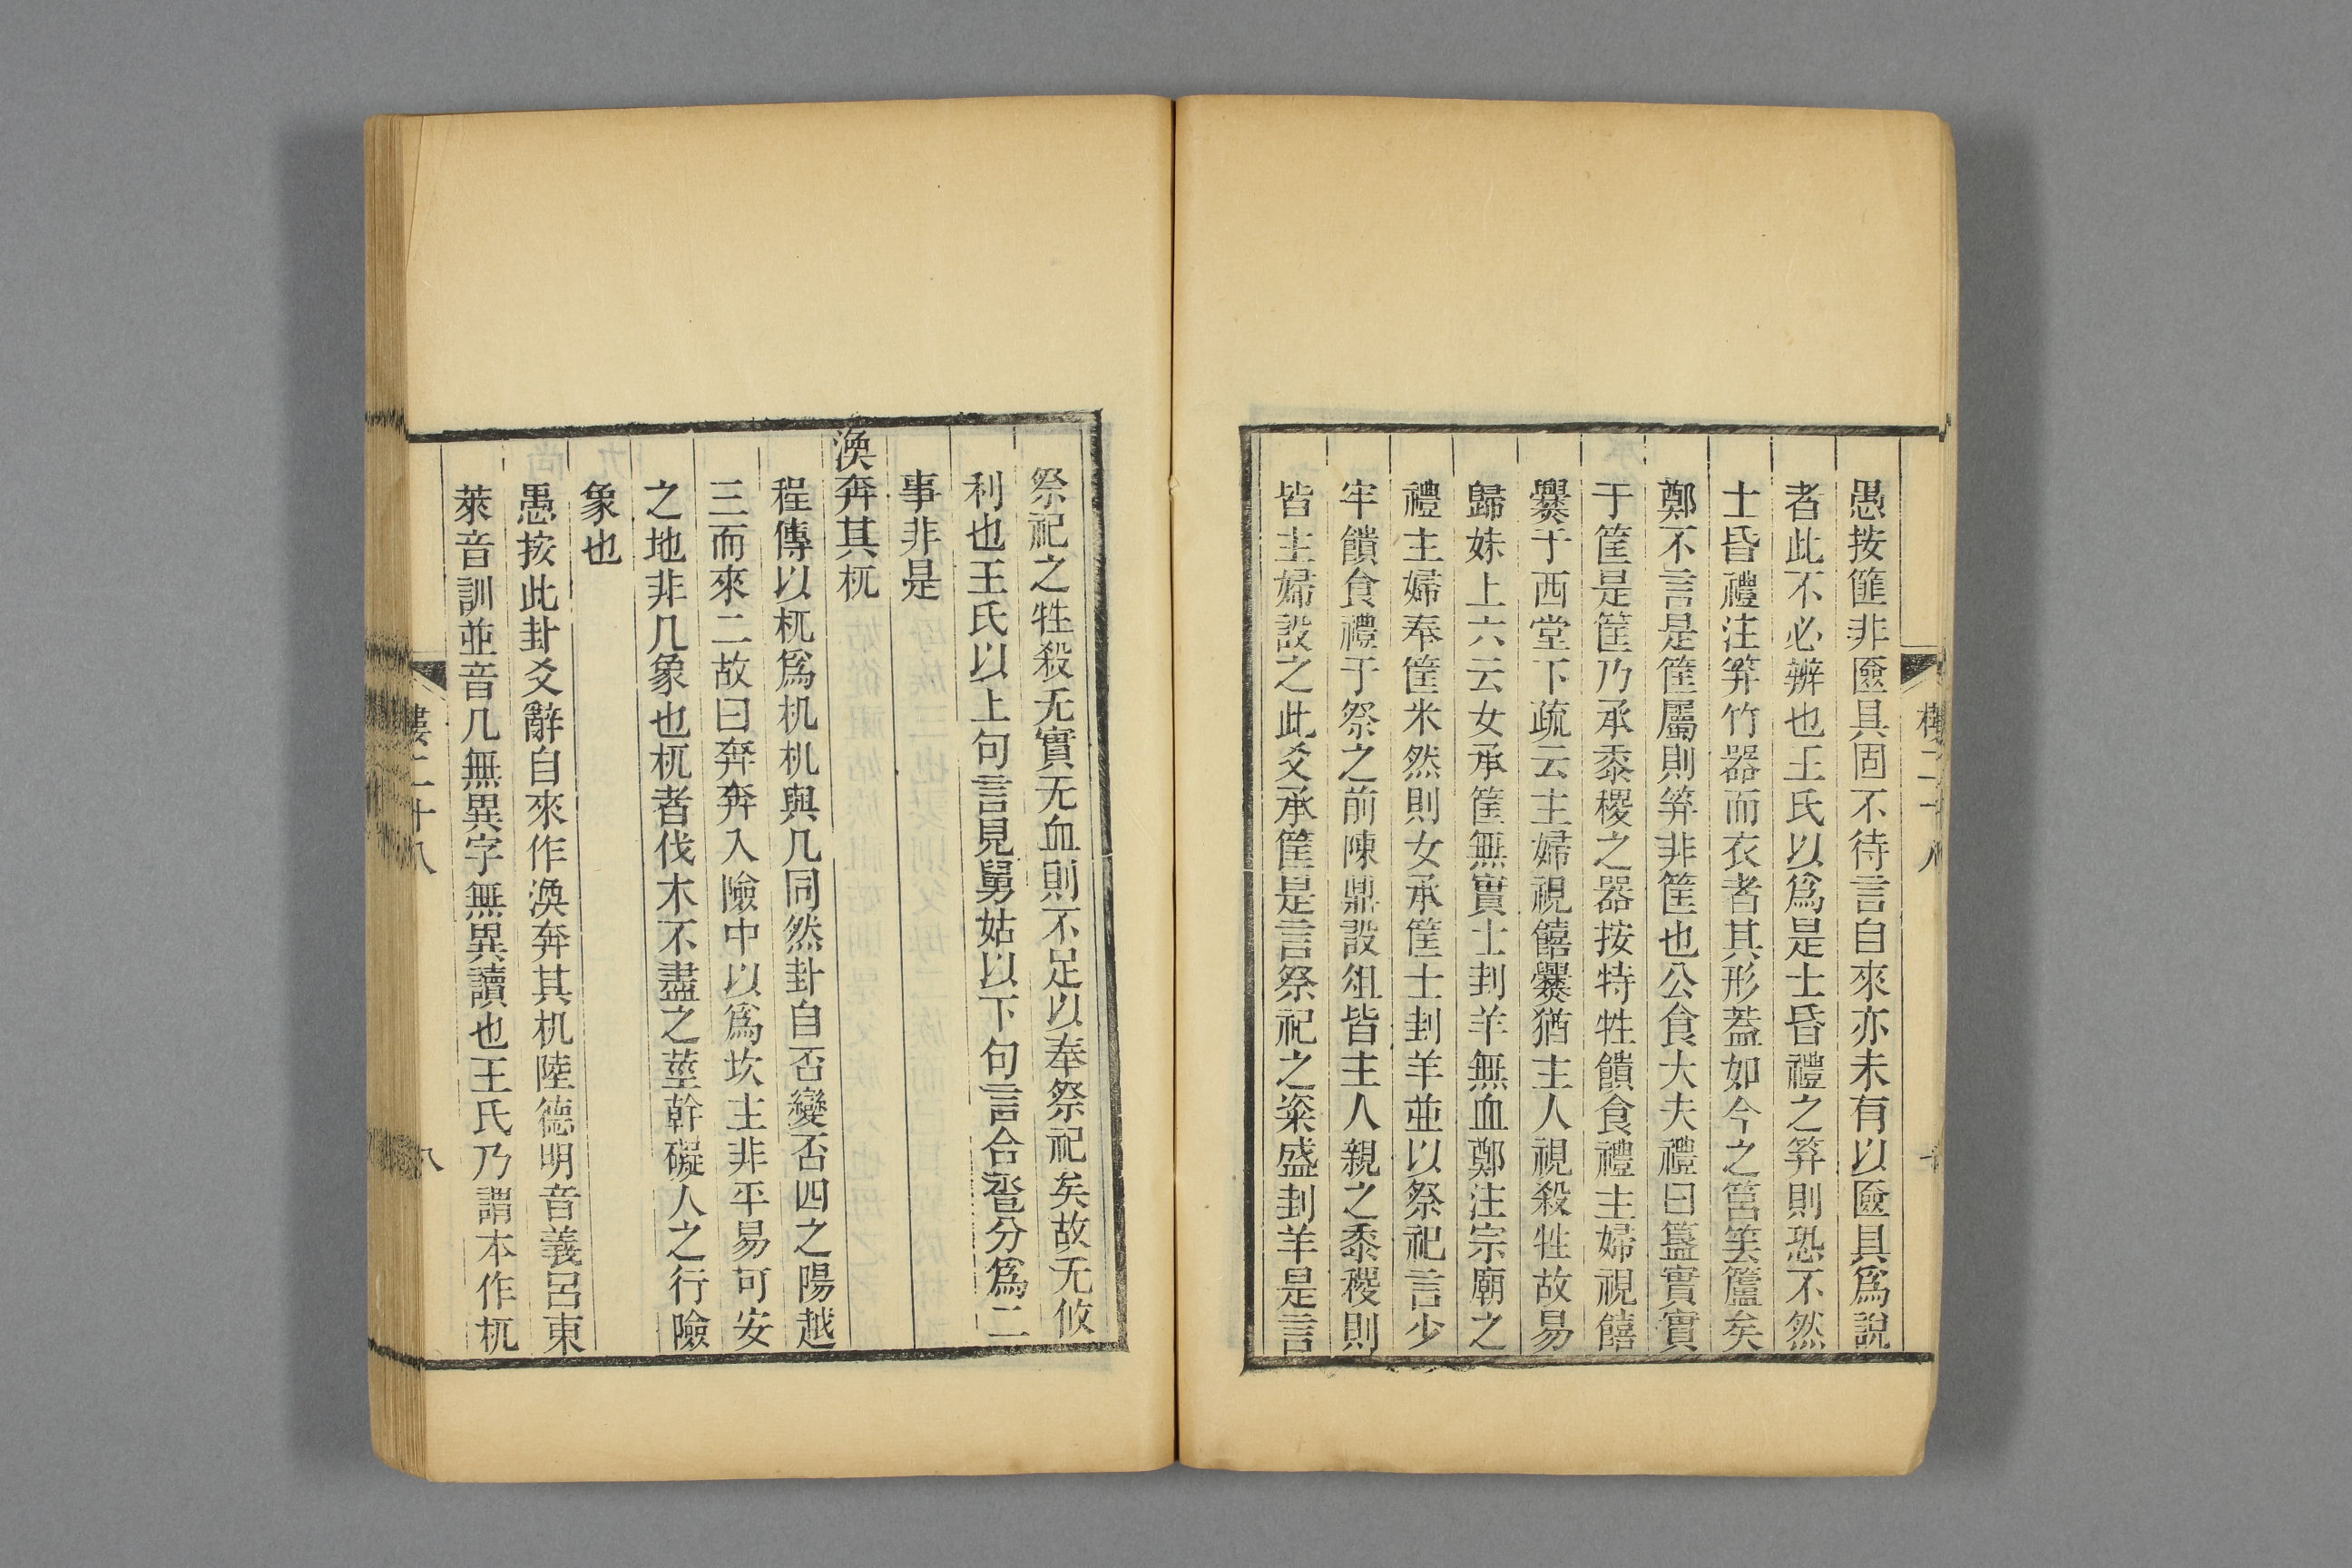 愚按筐非匳具固不待言自來亦未有以匳具爲說
者此不必辨也王氏以爲是士昏禮之笲則恐不然
士昏禮注笲竹器而衣者其形蓋如今之筥䇲籚矣
鄭不言是筐屬則笲非筐也公食大夫禮曰簋實實
于筐是筐乃承黍稷之器按特牲饋食禮主婦視饎
爨于西堂下疏云主婦視饎爨猶主人視殺牲故易
歸妹上六云女承筐無實士刲羊無血鄭注宗廟之
禮主婦奉筐米然則女承筐士刲羊並以祭祀言少
牢饋食禮于祭之前陳鼎設俎皆主人親之黍稷則
皆主婦設之此爻承筐是言祭祀之粢盛刲羊是言
祭祀之牲殺无實无血則不足以奉祭祀矣故无攸
利也王氏以上句言見舅姑以下句言合巹分爲二
事非是
渙奔其杌
程傳以杌爲机机與几同然卦自否變否四之陽越
三而來二故曰奔奔入險中以爲坎主非平易可安
之地非几象也杌者伐木不盡之莖幹礙人之行險
象也
愚按此卦爻辭自來作渙奔其机陸德明音義呂東
萊音訓並音几無異字無異讀也王氏乃謂本作杌
二十八
八